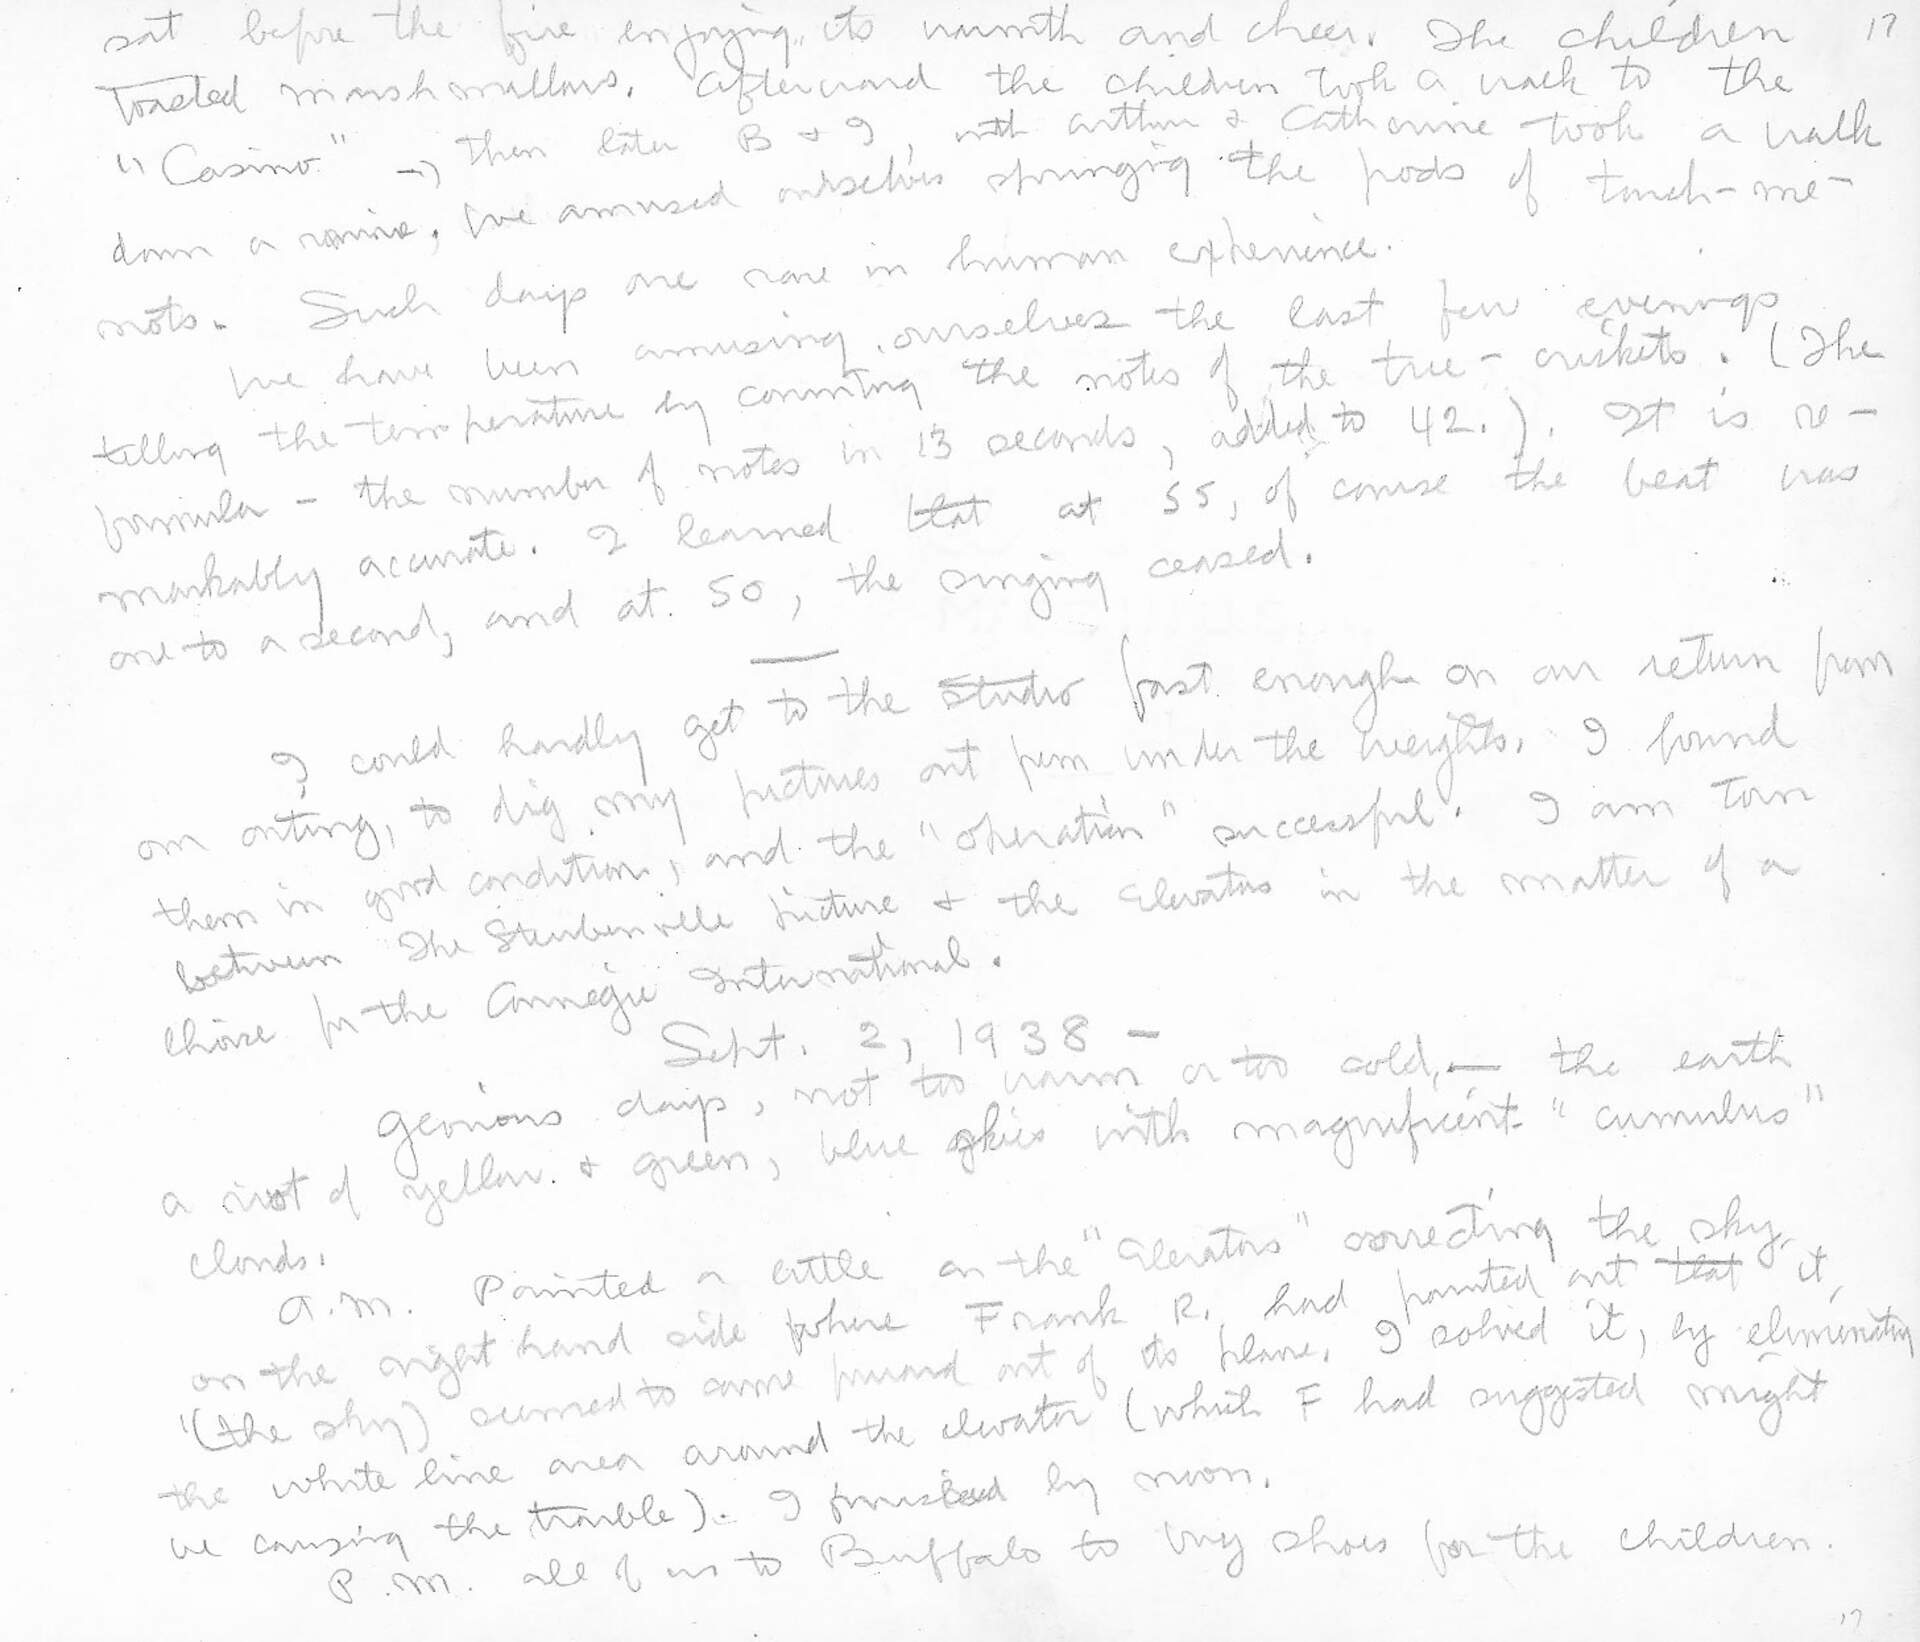 sat before the fire enjoying its warmth and cheer. The children 17
toasted marshmallows. Afterward the children took a walk to the
"Casino" → then later B & I, with Arthur & Catherine took a walk
down a ravine. We amused ourselves springing the pods of touch-me-
nots. Such days are rare in human experience.
We have been amusing ourselves the last few evenings
telling the temperature by counting the notes of the tree-crickets. (The
formula - the number of notes in 13 seconds, added to 42.). It is re-
markably accurate. I learned that at 55, of course the beat was
one to a second, and at 50, the singing ceased.
I could hardly get to the studio fast enough on our return from
our outing, to dig my pictures out from under the weights. I found
them in good condition, and the "operation" successful. I am torn
between The Steubenville picture & the Elevators in the matter of a
choice for the Carnegie International.
Sept. 2, 1938 -
Glorious days, not too warm or too cold, — the earth
a riot of yellow & green, blue skies with magnificent "cumulus"
clouds.
A.M. Painted a little on the "Elevators" correcting the sky
on the right hand side where Frank R. had pointed out that it
"(the sky) seemed to come forward out of its plane. I solved it, by eliminating
the white line area around the elevator (which F had suggested might
be causing the trouble). I finished by noon.
P.M. all of us to Buffalo to buy shoes for the children.
17